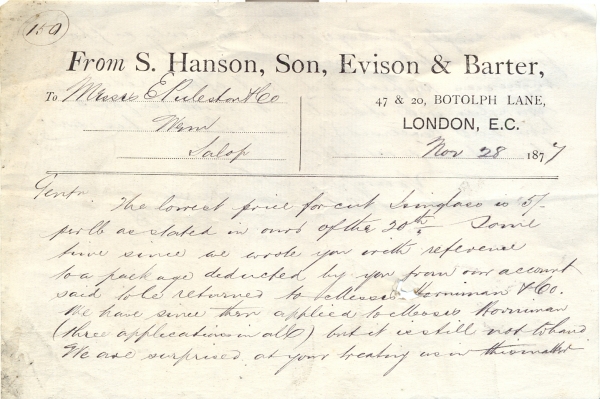 150
From S. Hanson, Son, Evison & Barter,
To Messrs E Puleston & Co
47 & 20, BOTOLPH LANE,
Wem
LONDON, E.C.
Salop
Nov 28 1877
Gentn.
The lowest price for cut Isinglass is 5/-
per lb as stated in ours of the 20th. Some
time since we wrote you with reference
to a package deducted by you from our account
said to be returned to Messrs Horniman & Co.
We have since then applied to Messrs Horniman
(three applications in all) but it is still not to hand
We are surprised at your treating us in this matter